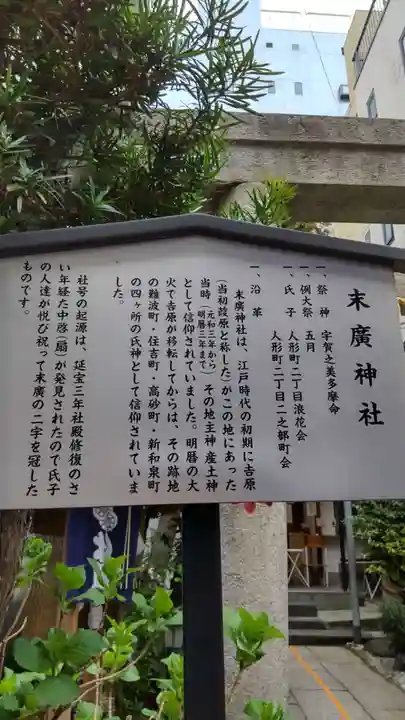 末廣神社
一、祭神　宇賀之美多摩命
一、例大祭　五月
一、氏子　人形町二丁目浪花会
人形町二丁目二之部町会
一、沿革
末廣神社は、江戸時代の初期に吉原
（当初葭原と称した）がこの地にあった
当時（元和三年から明暦三年まで）その地主神産土神
として信仰されていました。明暦の大
火で吉原が移転してからは、その跡地
の難波町・住吉町・高砂町・新和泉町
の四ヶ所の氏神として信仰されていま
した。
社号の起源は、延宝三年社殿修復のさ
い年経た中啓（扇）が発見されたので氏子
の人達が悦び祝って末廣の二字を冠した
ものです。